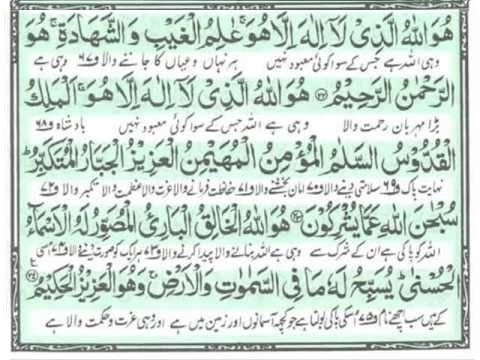 هُوَ اللّٰهُ الَّذِیْ لَاۤ اِلٰهَ اِلَّا هُوَۚ عٰلِمُ الْغَیْبِ وَ الشَّهَادَةِۚ هُوَ
وہی اللہ ہے جس کے سوا کوئی معبود نہیں ہر نہاں و عیاں کا جاننے والا ف۶۷ وہی ہے
الرَّحْمٰنُ الرَّحِیْمُ ﴿۲۲﴾ هُوَ اللّٰهُ الَّذِیْ لَاۤ اِلٰهَ اِلَّا هُوَۚ اَلْمَلِكُ
بڑا مہربان رحمت والا وہی ہے اللہ جس کے سوا کوئی معبود نہیں بادشاہ ف۶۸
الْقُدُّوْسُ السَّلٰمُ الْمُؤْمِنُ الْمُهَیْمِنُ الْعَزِیْزُ الْجَبَّارُ الْمُتَكَبِّرُؕ
نہایت پاک ف۶۹ سلامتی دینے والا ف۷۰ امان بخشنے والا ف۷۱ حفاظت فرمانے والا عزت والا عظمت والا تکبر والا ف۷۲
سُبْحٰنَ اللّٰهِ عَمَّا یُشْرِكُوْنَ ﴿۲۳﴾ هُوَ اللّٰهُ الْخَالِقُ الْبَارِئُ الْمُصَوِّرُ لَهُ الْاَسْمَآءُ
اللہ کو پاکی ہے ان کے شرک سے وہی ہے اللہ بنانے والا پیدا کرنے والا ف۷۳ ہر ایک کو صورت دینے والا ف۷۴ اسی
الْحُسْنٰىؕ یُسَبِّحُ لَهٗ مَا فِی السَّمٰوٰتِ وَ الْاَرْضِۚ وَ هُوَ الْعَزِیْزُ الْحَكِیْمُ ﴿۲۴﴾
کے ہیں سب اچھے نام ف۷۵ اسکی پاکی بولتا ہے جو کچھ آسمانوں اور زمین میں ہے اور وہی عزت و حکمت والا ہے